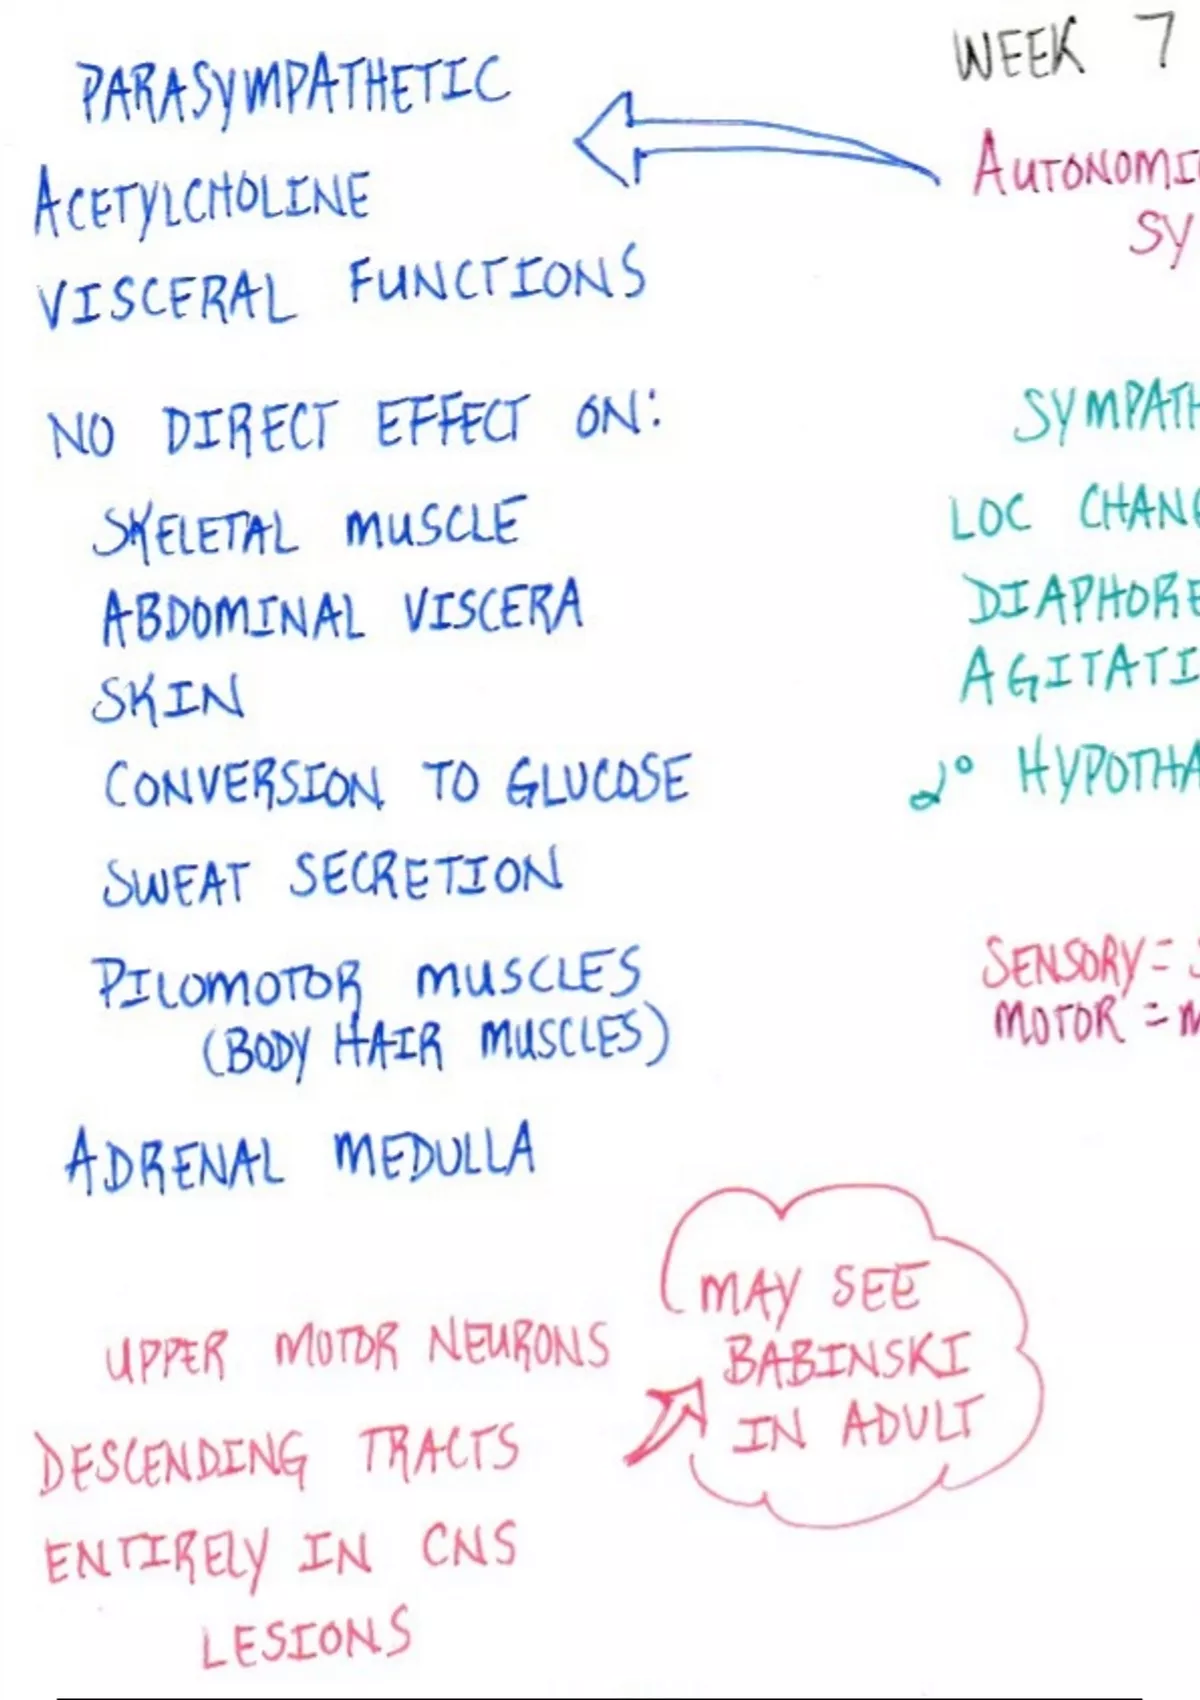 WEEK 7
PARASYMPATHETIC
ACETYLCHOLINE
VISCERAL FUNCTIONS
NO DIRECT EFFECT ON:
SKELETAL MUSCLE
ABDOMINAL VISCERA
SKIN
CONVERSION TO GLUCOSE
SWEAT SECRETION
PILOMOTOR MUSCLES
(BODY HAIR MUSCLES)
ADRENAL MEDULLA
UPPER MOTOR NEURONS
DESCENDING TRACTS
ENTIRELY IN CNS
LESIONS
MAY SEE
BABINSKI
IN ADULT
AUTONOMI
SY
SYMPATH
LOC CHANG
DIAPHORE
AGITATI
2° HYPOTHA
SENSORY = S
MOTOR = M